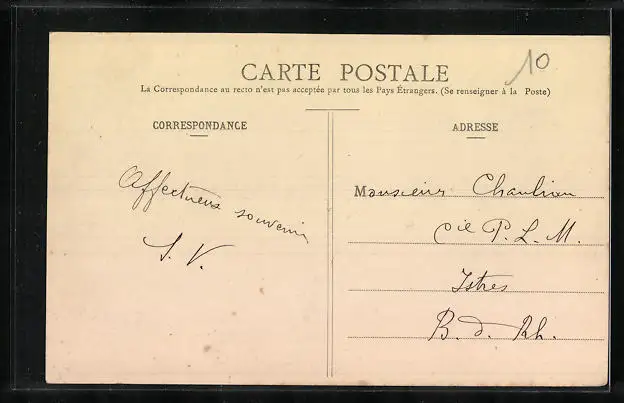 10
CARTE POSTALE
La Correspondance au recto n'est pas acceptée par tous les Pays Étrangers. (Se renseigner à la Poste)
CORRESPONDANCE
Affectueux souvenir
S. V.
ADRESSE
Monsieur Chanlian
Cie P. L. M.
Istres
B. d. Rh.